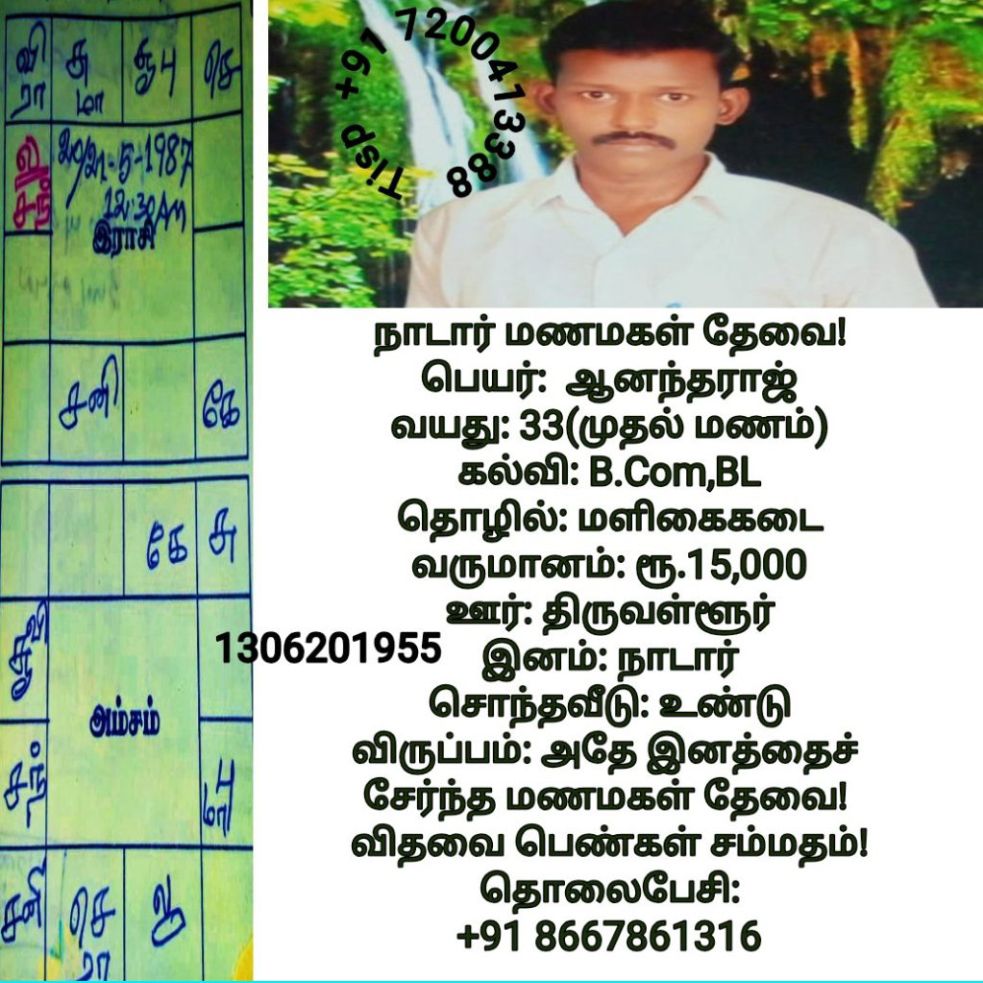 Tisp +91 7200413388
வி சு சூ பு செ
ரா மா
ல 20/21-5-1987
சந் 12:30AM
இராசி
சனி கே
கே சு
சூ வி
அம்சம்
சந் பு
மா
சனி செ
ரா
1306201955
நாடார் மணமகள் தேவை!
பெயர்: ஆனந்தராஜ்
வயது: 33(முதல் மணம்)
கல்வி: B.Com,BL
தொழில்: மளிகைகடை
வருமானம்: ரூ.15,000
ஊர்: திருவள்ளூர்
இனம்: நாடார்
சொந்தவீடு: உண்டு
விருப்பம்: அதே இனத்தைச்
சேர்ந்த மணமகள் தேவை!
விதவை பெண்கள் சம்மதம்!
தொலைபேசி:
+91 8667861316